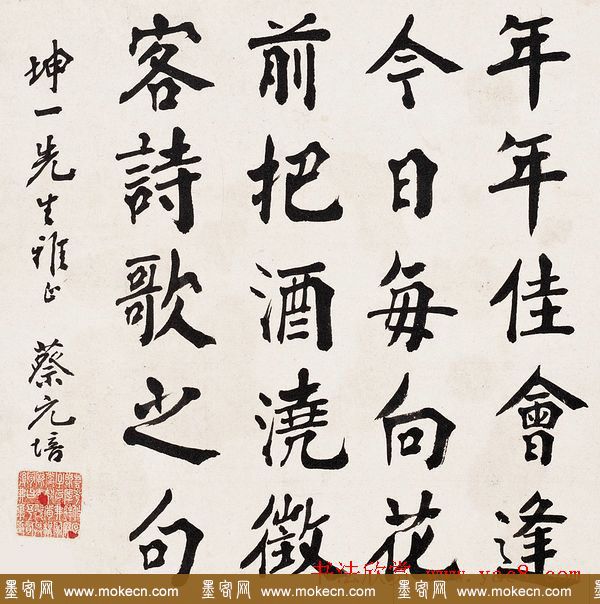 年年佳會逢
今日每向花
前把酒澆徵
客詩歌之句
坤一先生雅正 蔡元培
书法欣赏
墨客网 www.mokecn.com 墨客网 www.mokecn.com 墨客网 www.mokecn.com